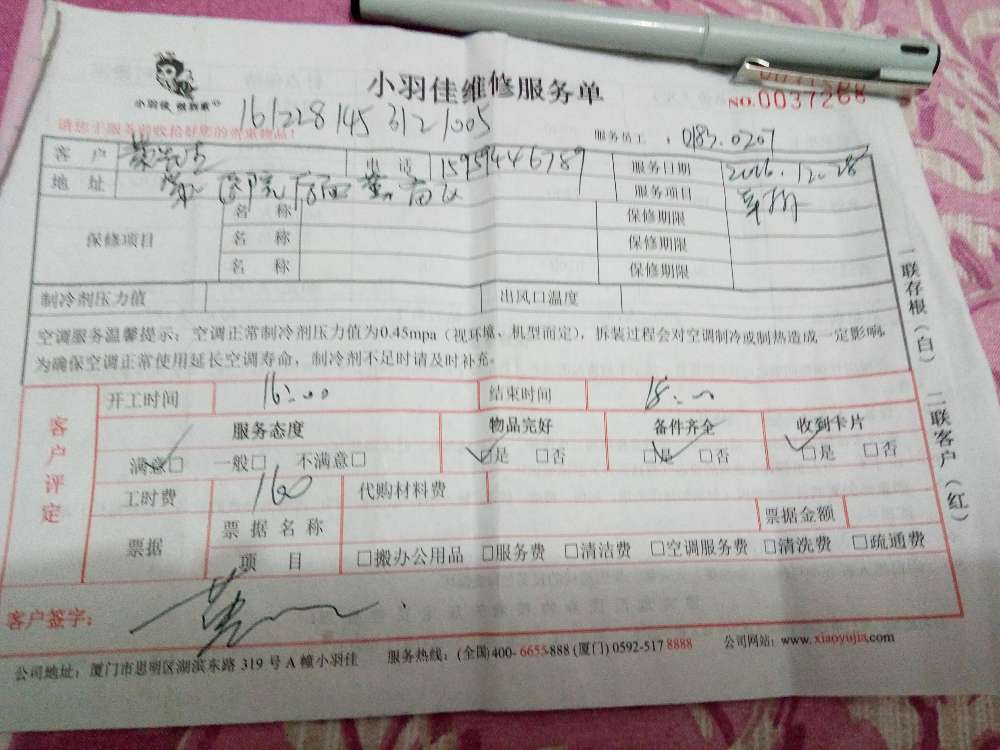 小羽佳维修服务单
小羽佳
NO.0037268
161228145 3121005
请您于服务前收拾好您的贵重物品!
服务员工: 0183.0207
客户 电话 15959446789 服务日期 2016.12.28
地址 服务项目
保修项目 名称 保修期限
名称 保修期限
名称 保修期限
制冷剂压力值 出风口温度
空调服务温馨提示:空调正常制冷剂压力值为0.45mpa(视环境、机型而定),拆装过程会对空调制冷或制热造成一定影响,
为确保空调正常使用延长空调寿命,制冷剂不足时请及时补充。
一联存根(白) 二联客户(红)
客户评定
开工时间 16:00 结束时间 18:00
服务态度 物品完好 备件齐全 收到卡片
满意□ 一般□ 不满意□ □是 □否 □是 □否 □是 □否
工时费 160 代购材料费
票据 票据名称 票据金额
项目 □搬办公用品 □服务费 □清洁费 □空调服务费 □清洗费 □疏通费
客户签字:
公司地址:厦门市思明区湖滨东路 319 号 A 幢小羽佳 服务热线:(全国)400-6655-888 (厦门) 0592-517 8888 公司网站:www.xiaoyujia.com